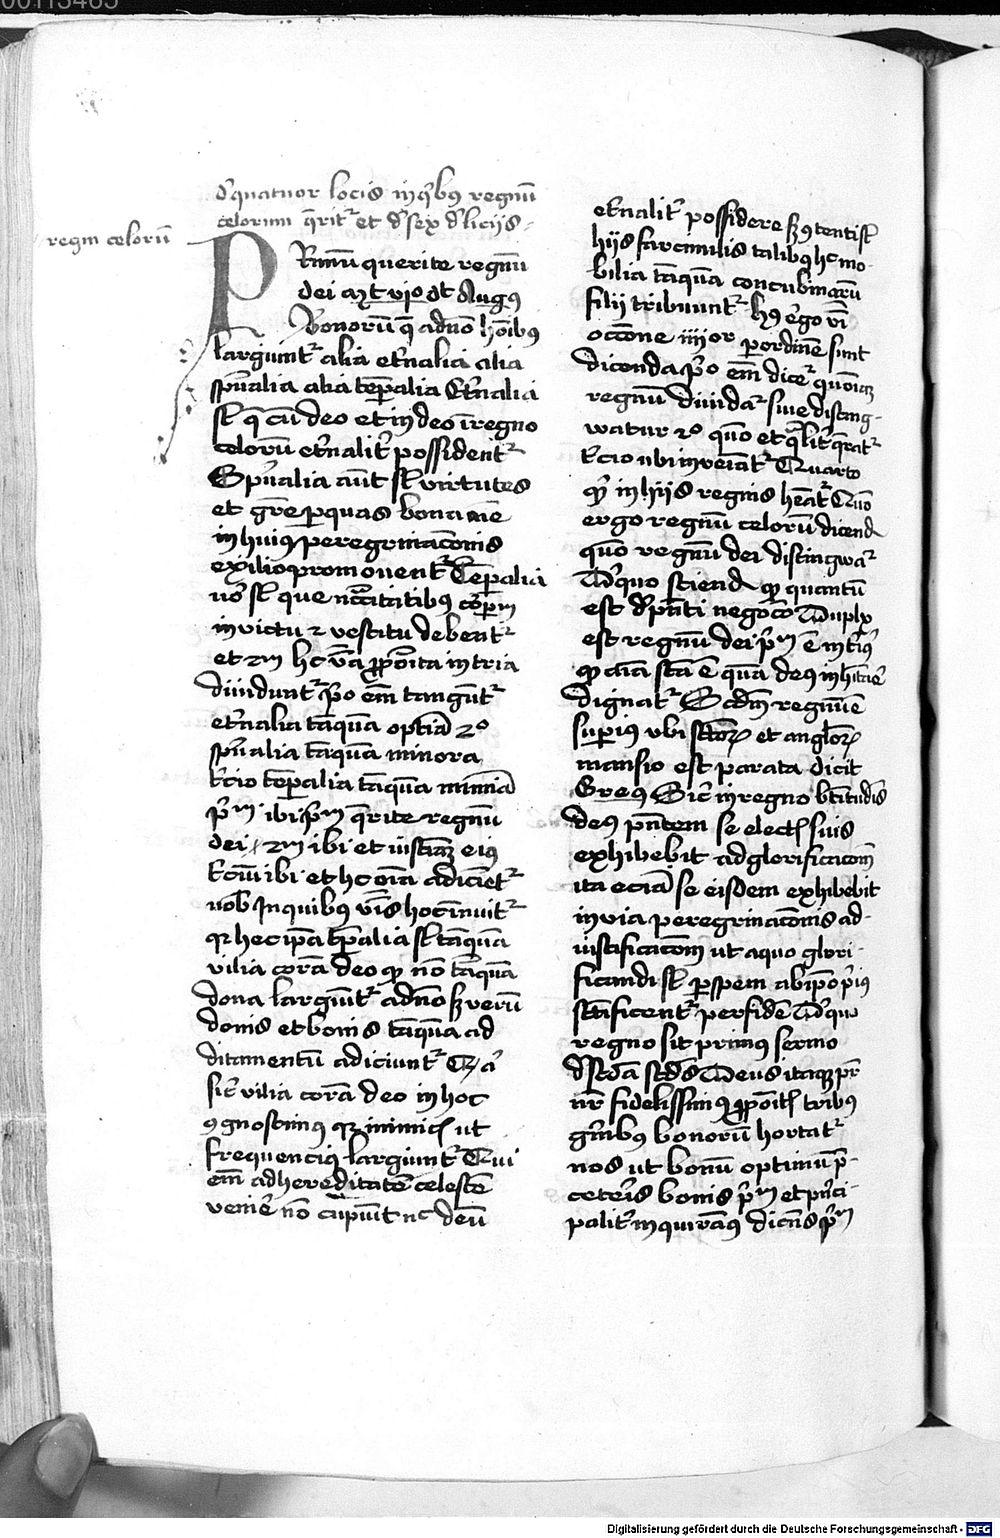 00113465
d' quatuor locis in q'bus regnū
celorum q̄rit' et d' sex d'liciis
regnū celorū
PRimū querite regnū
dei Mt vjo dt Augus
Bonorū q̄ a dn̄o hōibus
largiunt' alia et'nalia alia
sp̄ualia alia tēꝑalia Et'nalia
st̄ q̄ cū deo et in deo ī regno
celorū et'nalit' possident'
Sp̄ualia aūt st̄ virtutes
et grē ꝑ quas bona mē
in huius peregrinacōnis
exilio promouent' Tēꝑalia
v'o st̄ que nccītatibus corpm
in victu ⁊ vestitu debent'
et 2m hc v̄ba ꝓpoīta in tria
diuidunt' p'o em̄ tangūt'
et'nalia tāquā optīa 2o
sp̄ualia tāquā minora
t'cio tēꝑalia tāquā minīa
p'm ibi p'm q̄rite regnū
dei 2m ibi et iusticiā eius
t'ciū ibi et hc oīa adiciēt'
vob In quibus v̄bis hoc īnuit'
qr hec ip̄a tꝑalia st̄ tāquā
vilia corā deo qꝫ nō tāquā
dona largiūt' a dn̄o sꝫ verū
donis et bonis tāquā ad
ditamentū adiciunt'
sic̄ vilia corā deo in hoc
ꝯgnoscimus qr inimicis ut
frequencius largiunt' Qui
em̄ ad hereditatē celestē
venir̄ nō cupiūt nc deū
et'nalit' possidere sꝫ ꝯtenti st̄
hiis farcinulis talibus hc mo-
bilia tāquā concubinarū
filii tribuunt' h9 ergo v̄bi
occōne iiiior ꝑ ordinē sunt
dicenda p'o em̄ dicet' quōmō
regnū diuidat' siue disting-
watur 2o quō et q̄lit' q̄rat'
t'cio ubi inveniat' Quarto
qꝫ in hiis regnis hēat' Quō
ergo regnū celorū dicend
quō regnū dei distingwat'
D' quo sciend qꝫ quantū
est d' p̄nti negocō Duplx
est regnū dei p'm ē int'ius
qꝫ aīa scā ē quā deus inh'itare
dignat' Scd'm regnū ē
superius vbi sctōrꝫ et anglorꝫ
mansio est parata dicit
Greg9 Sic̄ in regno bt̄itudīs
deus p̄ntem se elect̄ suis
exhibebit ad glorificacōm
ita eciā se eisdem exhibebit
in via peregrinacōnis ad-
iustificacōm ut a quo glori-
ficandi st̄ ꝑ spem ab ip̄o p'ius
sctīficent' per fidē D' quo
regno sit primus sermo
Deus itaqꝫ pr̄
nr̄ fidelissimus ꝓpoīt̄ tribus
gn̄ibus bonorū hortat'
nos ut bonū optimū p̄-
ceteris bonis p'm et p'nci-
palit' inquiramus dicēs p'm
Digitalisierung gefördert durch die Deutsche Forschungsgemeinschaft - DFG